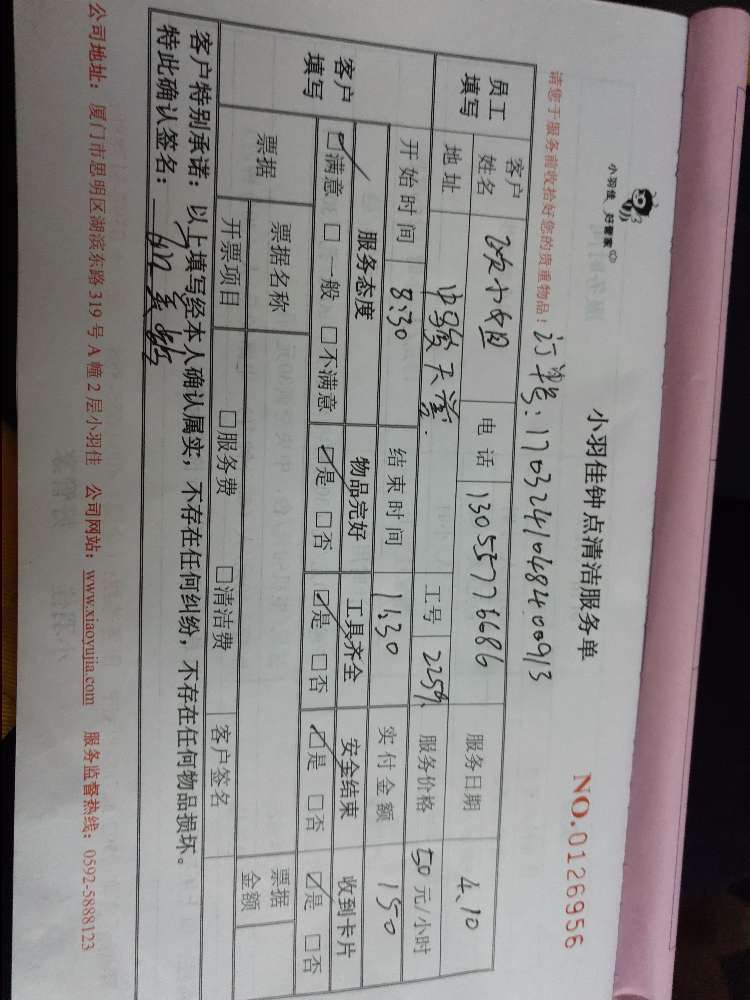 小羽佳 好管家
小羽佳钟点清洁服务单
NO.0126956
请您于服务前收拾好您的贵重物品！
订单号：17032410484009/3
员工填写
客户姓名 电话 13055776686 服务日期 4.10
地址 中骏天誉. 工号 服务价格 50元/小时
开始时间 8:30 结束时间 11:30 实付金额 150
客户填写
服务态度 物品完好 工具齐全 安全结束 收到卡片
☑满意 □一般 □不满意 ☑是 □否 ☑是 □否 ☑是 □否 ☑是 □否
票据 票据名称 票据金额
开票项目 □服务费 □清洁费 客户签名
客户特别承诺：以上填写经本人确认属实，不存在任何纠纷，不存在任何物品损坏。
特此确认签名：
公司地址：厦门市思明区湖滨东路319号A幢2层小羽佳 公司网站：www.xiaoyujia.com 服务监督热线：0592-5888123